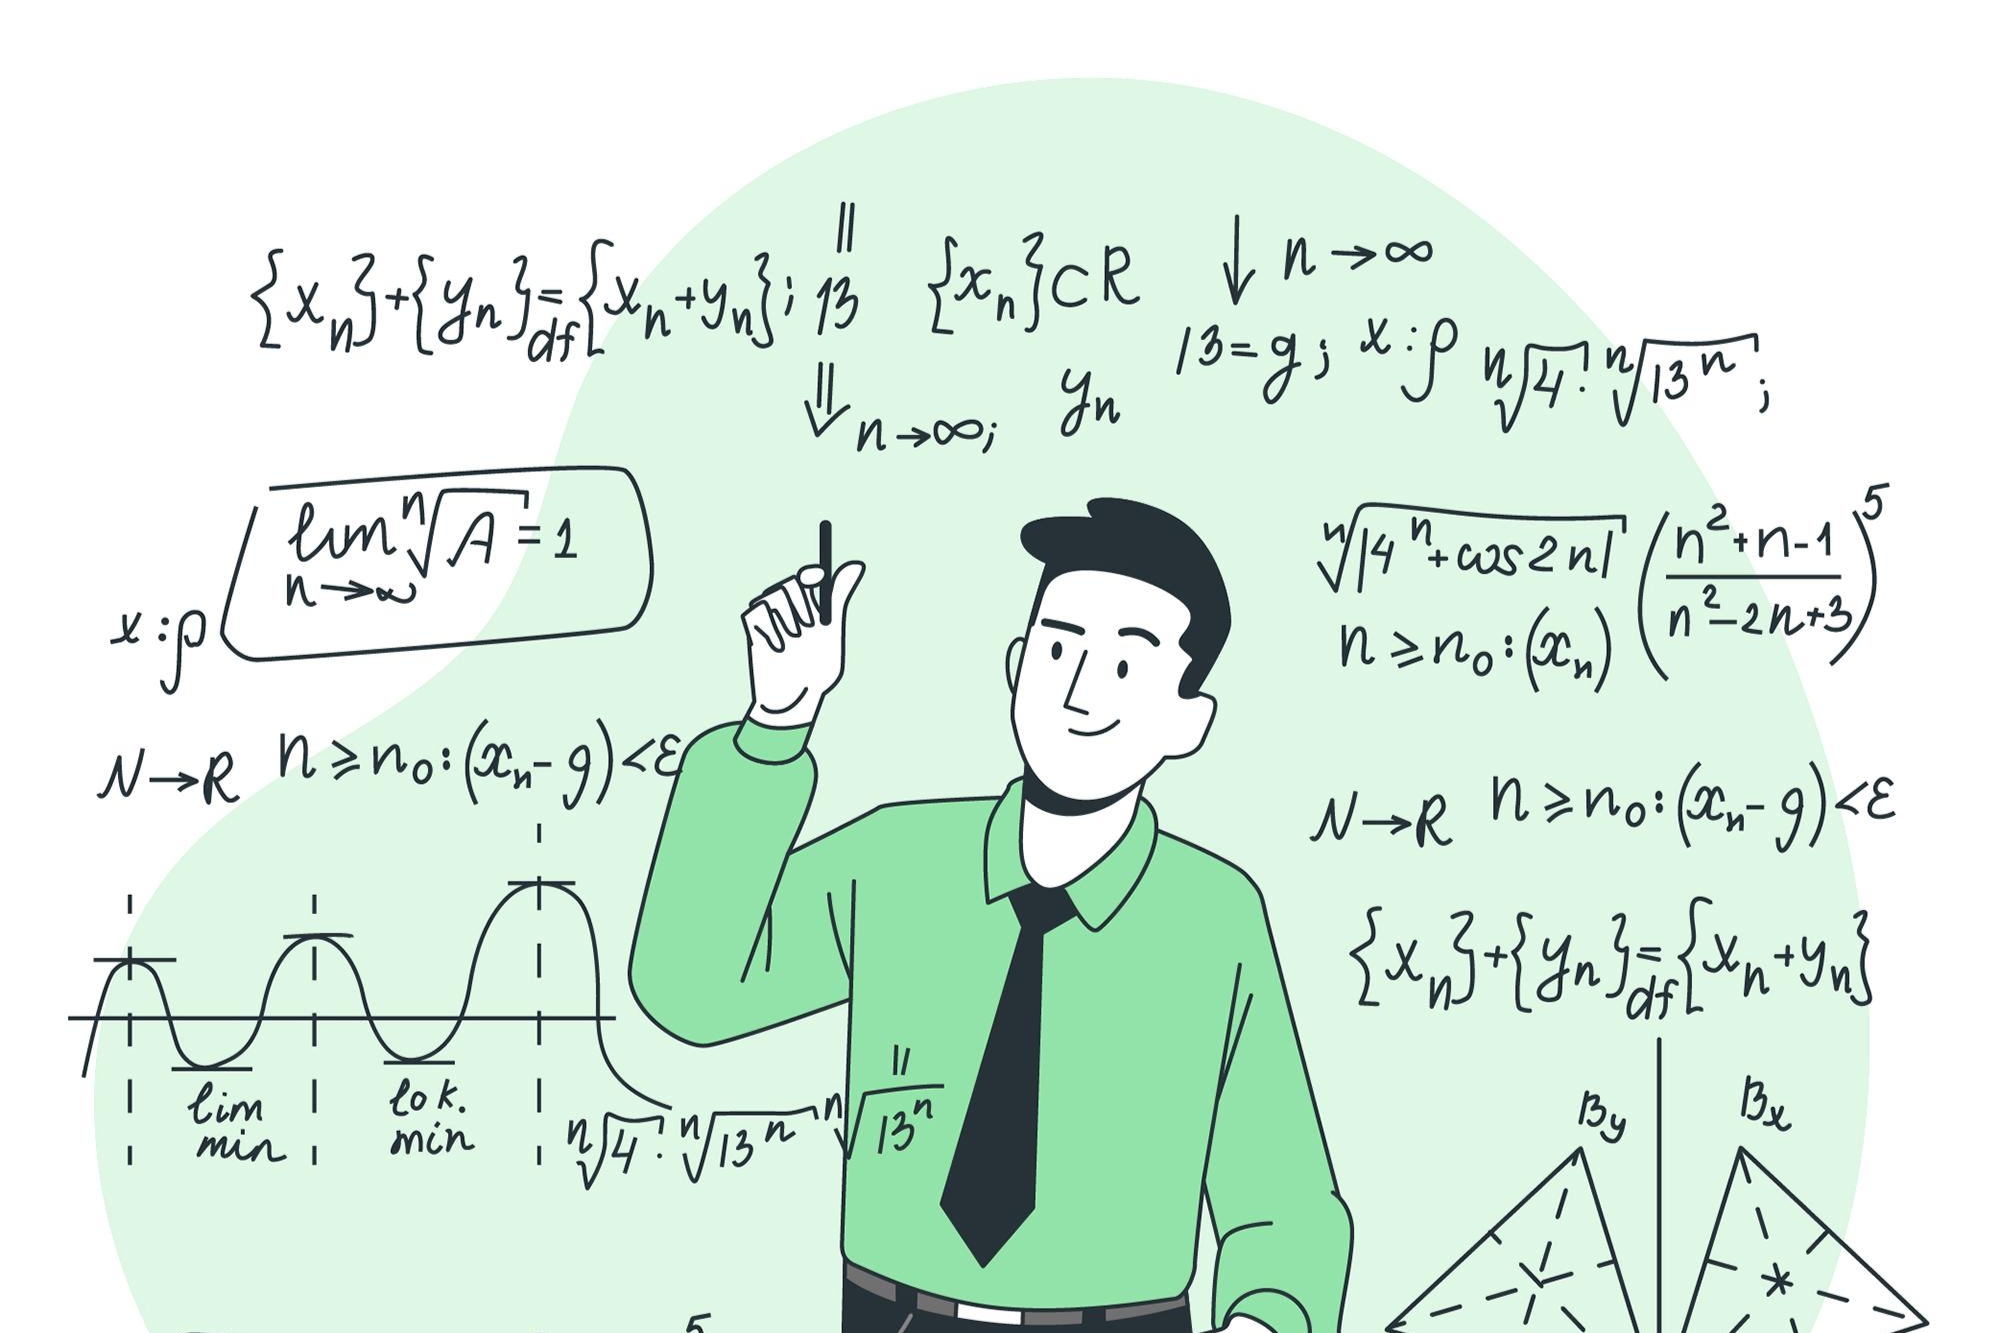 {xₙ}+{yₙ}=df{xₙ+yₙ}; 13
||
⇓ n→∞;
{xₙ}⊂R
yₙ
↓ n→∞
13=g; x:ρ ⁿ√4! ⁿ√13ⁿ;
lim ⁿ√A = 1
n→∞
x:ρ
ⁿ√|4ⁿ+cos2n| (n²+n-1 / n²-2n+3)⁵
n⩾n₀:(xₙ)
N→R n⩾n₀:(xₙ-g)<ε
N→R n⩾n₀:(xₙ-g)<ε
{xₙ}+{yₙ}=df{xₙ+yₙ}
lim
min
lok.
min
ⁿ√4! ⁿ√13ⁿ ⁿ√13ⁿ
||
By
Bx
5